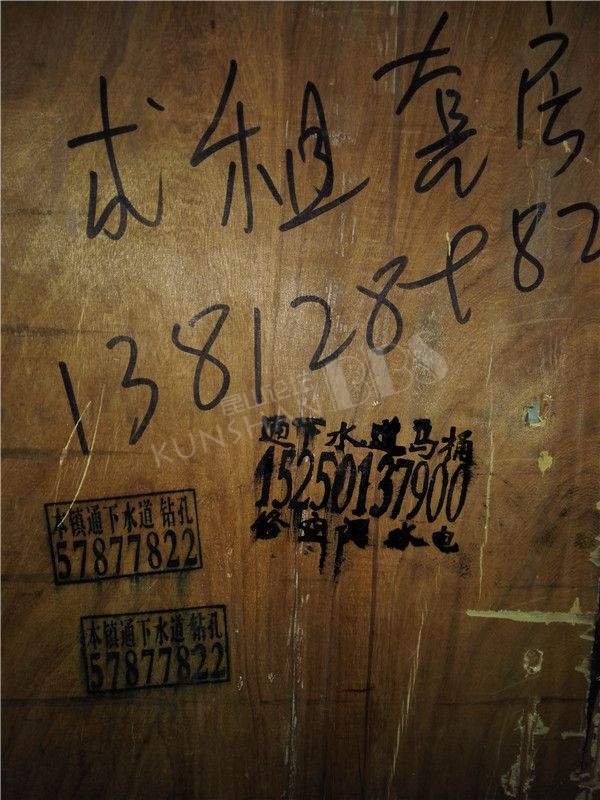 求租套房
138128482
昆山论坛BBS
KUNSHAN
通下水道马桶
15250137900
修空调水电
本镇通下水道 钻孔
57877822
本镇通下水道 钻孔
57877822